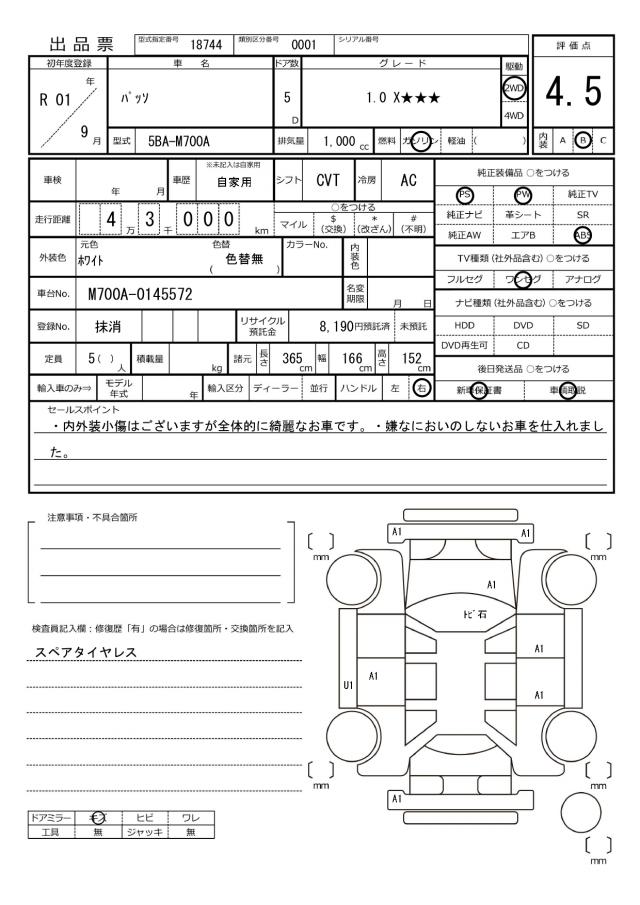 出品票 型式指定番号 18744 類別区分番号 0001 シリアル番号
評価点
4.5
内装 A B C
初年度登録 車名 ドア数 グレード 駆動
R 01 年 9 月
パッソ 5 D 1.0 X★★★ 2WD 4WD
型式 5BA-M700A 排気量 1,000 cc 燃料 ガソリン 軽油 ( )
車検 年 月 車歴 ※未記入は自家用 自家用 シフト CVT 冷房 AC
走行距離 4 3 0 0 0 万 千 km
○をつける
マイル $ (交換) * (改ざん) # (不明)
外装色 元色 ホワイト 色替 ( 色替無 ) カラーNo. 内装色
車台No. M700A-0145572 名変期限 月 日
登録No. 抹消 リサイクル預託金 8,190円預託済 未預託
定員 5( ) 人 積載量 kg 諸元 長さ 365 cm 幅 166 cm 高さ 152 cm
輸入車のみ⇒ モデル年式 年 輸入区分 ディーラー 並行 ハンドル 左 右
純正装備品 ○をつける
PS PW 純正TV
純正ナビ 革シート SR
純正AW エアB ABS
TV種類 (社外品含む) ○をつける
フルセグ ワンセグ アナログ
ナビ種類 (社外品含む) ○をつける
HDD DVD SD
DVD再生可 CD
後日発送品 ○をつける
新車保証書 車輌取説
セールスポイント
・内外装小傷はございますが全体的に綺麗なお車です。・嫌なにおいのしないお車を仕入れまし
た。
注意事項・不具合箇所
検査員記入欄：修復歴「有」の場合は修復箇所・交換箇所を記入
スペアタイヤレス
ドアミラー キズ ヒビ ワレ
工具 無 ジャッキ 無
A1 A1
[ ] mm [ ] mm
A1
トビ石
A1
A1
U1 A1
[ ] mm [ ] mm
A1
[ ] mm